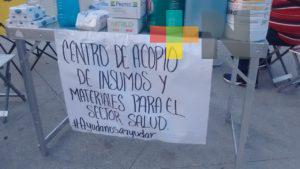 CENTRO DE ACOPIO
DE INSUMOS Y
MATERIALES PARA EL
SECTOR SALUD.
#Ayudanosaayudar